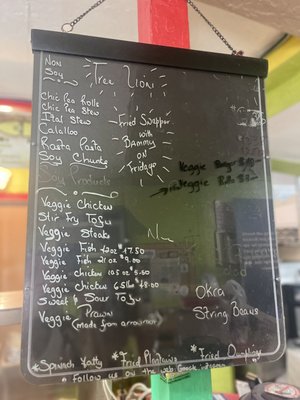 Non Soy
Tree Lion
Chic Pea Rolls
Chic Pea Stew
Ital Stew
Calalloo
Rasta Pasta
Soy Chunks
Fried Snapper
with
Bammy
on
Fridays
Soy Products
Veggie Chicken
Stir Fry Tofu
Veggie Steaks
Veggie Fish
Veggie Fish 21.oz $9.00
Veggie Chicken 10.5 oz
Veggie Chicken
Sweet & Sour Tofu
Veggie Prawn
(made from arrowroot)
Veggie
Veggie
Okra
String Beans
*Spinach Patty *Fried Plantains *Fried Dumpling
follow us on the web